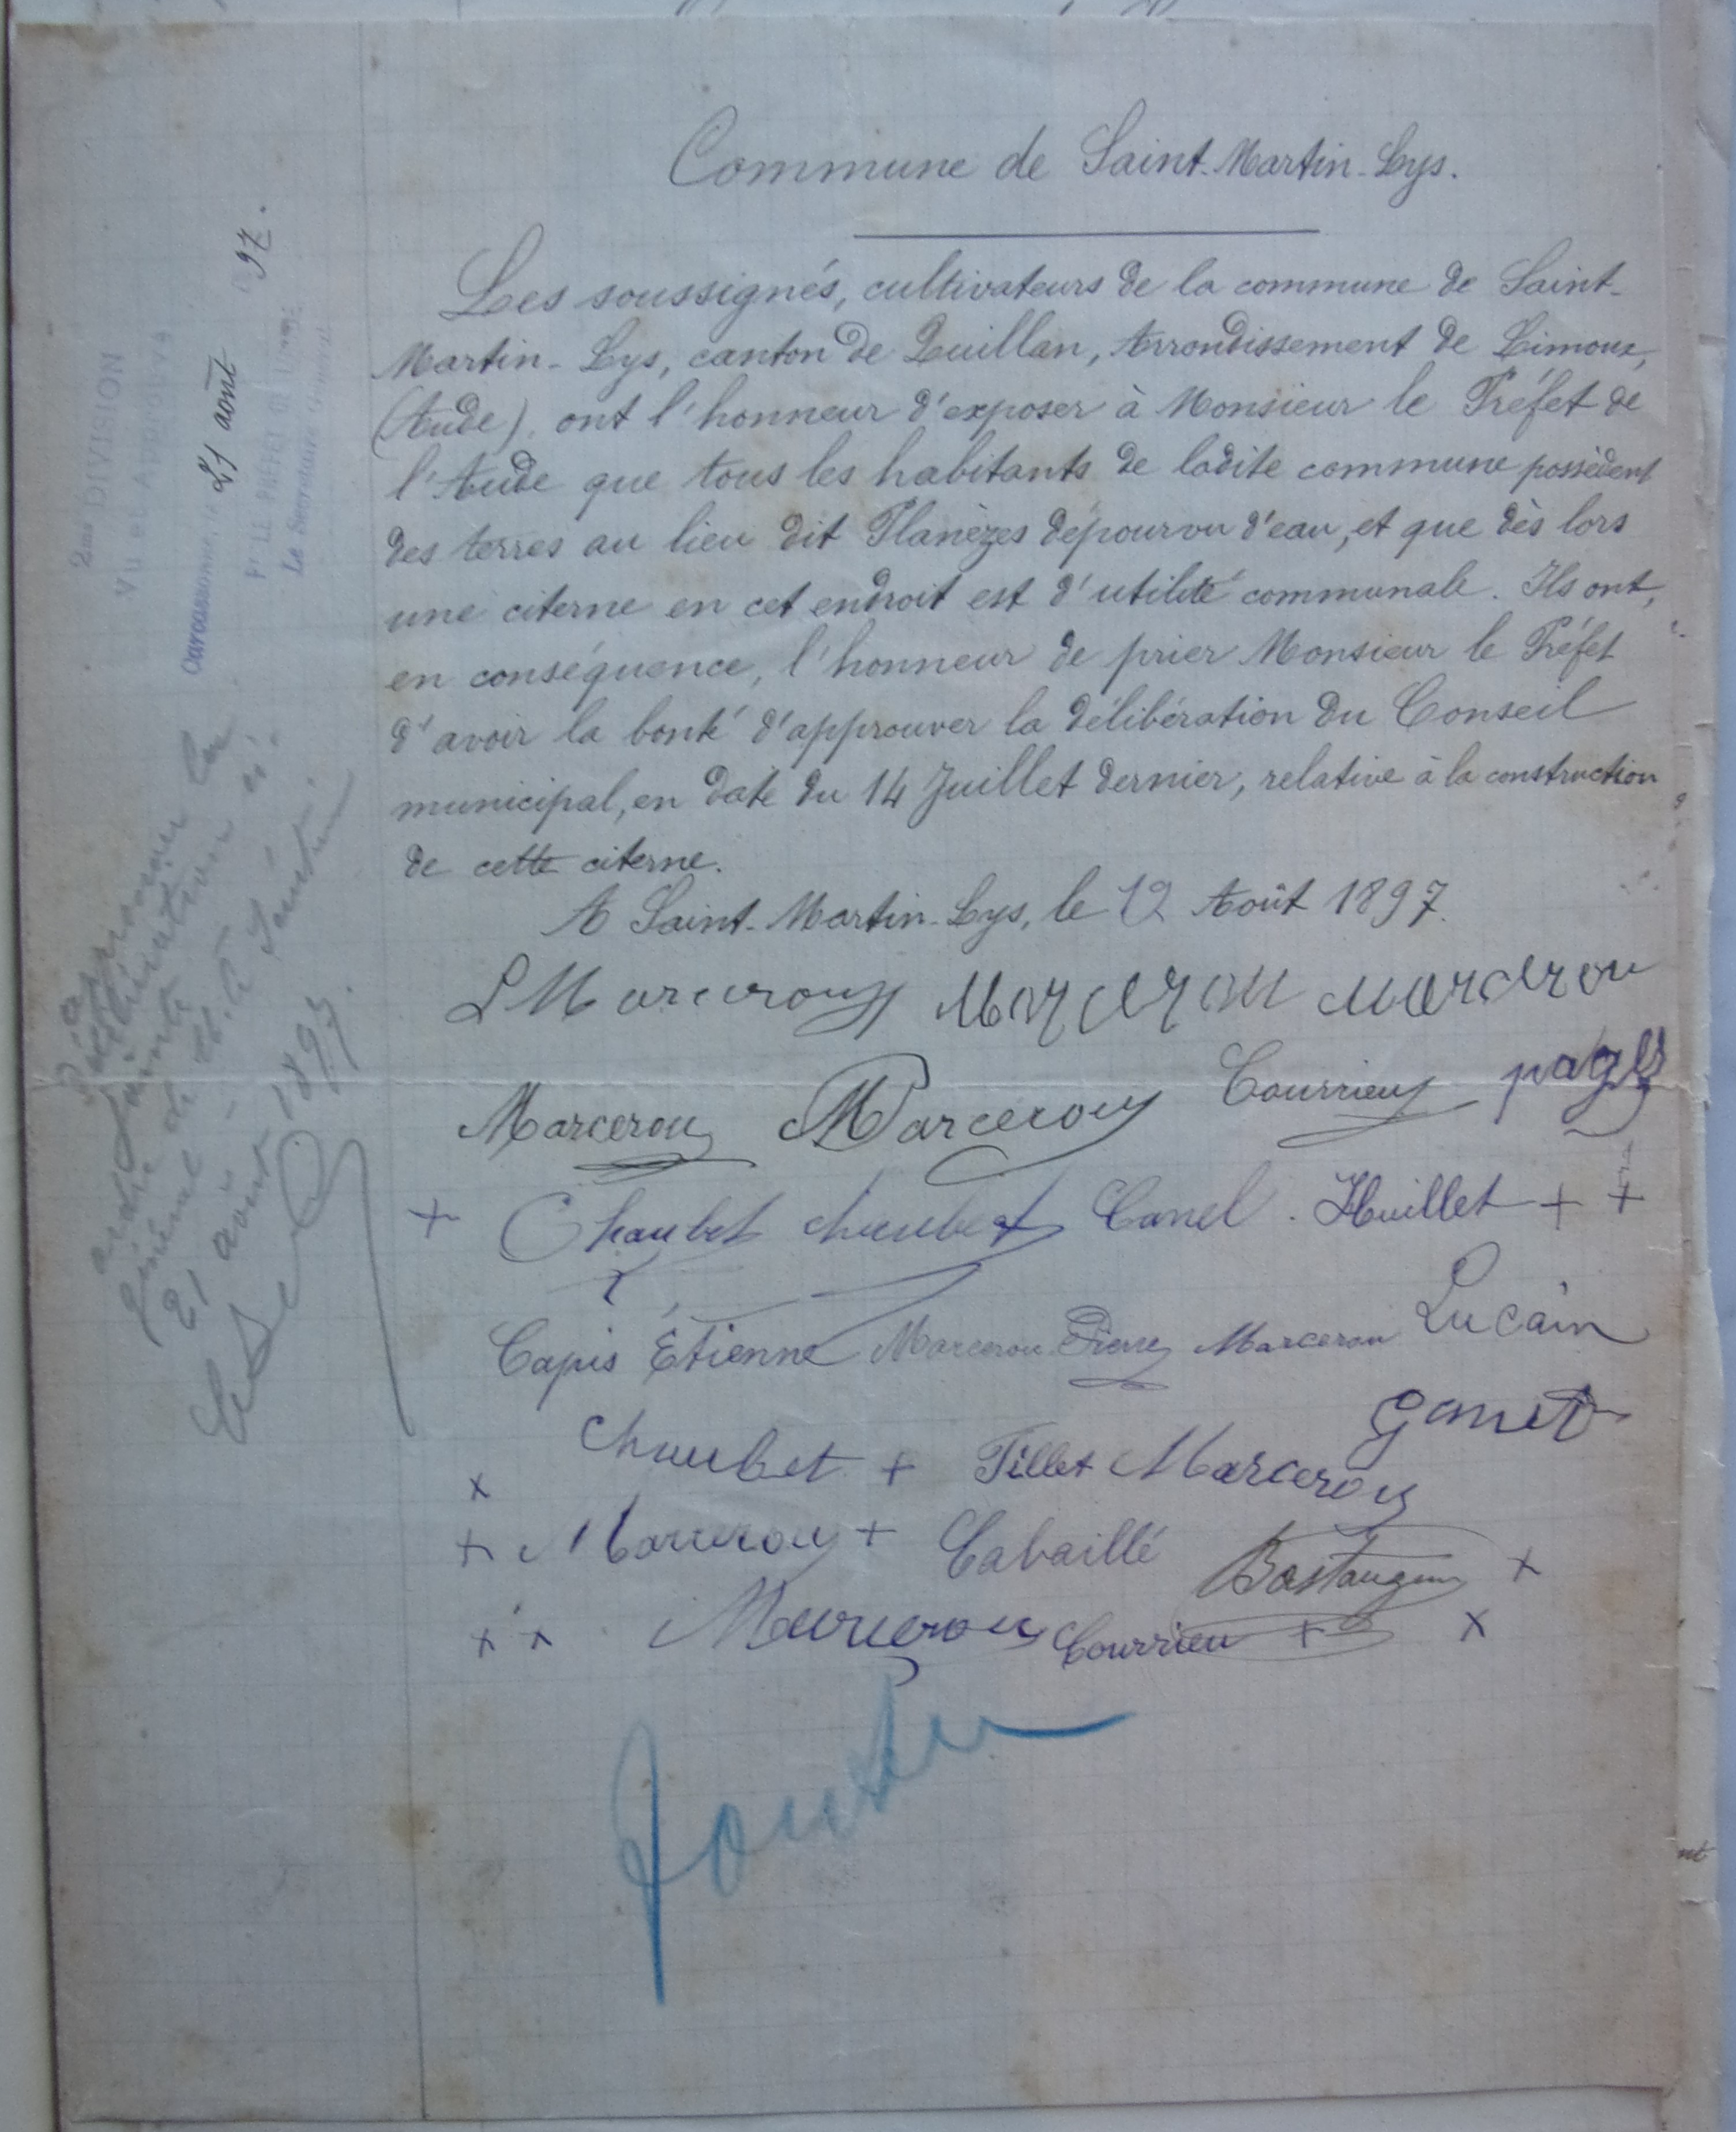 Commune de Saint-Martin-Lys.
Les soussignés, cultivateurs de la commune de Saint-
Martin-Lys, canton de Quillan, Arrondissement de Limoux,
(Aude), ont l'honneur d'exposer à Monsieur le Préfet de
l'Aude que tous les habitants de ladite commune possèdent
des terres au lieu dit Planèzes dépourvu d'eau, et que dès lors
une citerne en cet endroit est d'utilité communale. Ils ont,
en conséquence, l'honneur de prier Monsieur le Préfet
d'avoir la bonté d'approuver la délibération du Conseil
municipal, en date du 14 Juillet dernier, relative à la construction
de cette citerne.
A Saint-Martin-Lys, le 12 Août 1897.
L Marcerou Marcerou Marcerou
Marcerou Marcerou Courrieu pagès
+ Chaubet chaubet Canel. Huillet + +
Capis Étienne Marcerou Pierre Marcerou Lucain
Chaubet + Tillet Marcerou
x
+ Marcerou + Cabaillé Bastangue +
x x Marcerou Courrieu + x
2me DIVISION
Vu et Approuvé
Carcassonne, le 21 août 97.
Pr LE PRÉFET
Le Secrétaire Général
approuver la
délibération ci-
jointe
21 août 1897.